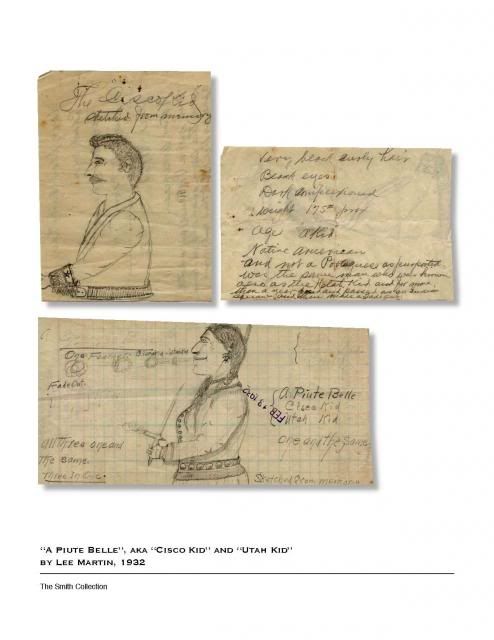 The Cisco Kid
sketched from memory
Very black curly hair
Black eyes
Dark complexioned
Weight 175
Age
Native American
and not a Portuguese as purported
was the same man who was known
also as the Utah Kid and for more
than a year
One
Fade Out.
FEB 19
A Piute Belle
Cisco Kid
Utah Kid
one and the same
all three one and
the same.
Three In One.
Sketched from memory
"A Piute Belle", aka "Cisco Kid" and "Utah Kid"
by Lee Martin, 1932
The Smith Collection